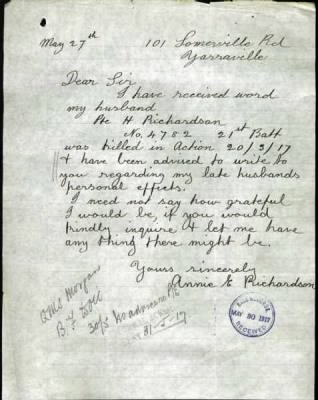 May 27th
101 Somerville Rd
Yarraville
Dear Sir
I have received word
my husband
Pte H Richardson
No. 4782 21st Batt
was killed in Action 20/3/17
& have been advised to write to
you regarding my late husbands
personal effects.
I need not say how grateful
I would be, if you would
kindly inquire & let me have
any thing there might be.
Yours sincerely
Annie E Richardson
30/5 No advice
31-5-17
MAY 30 1917
RECEIVED